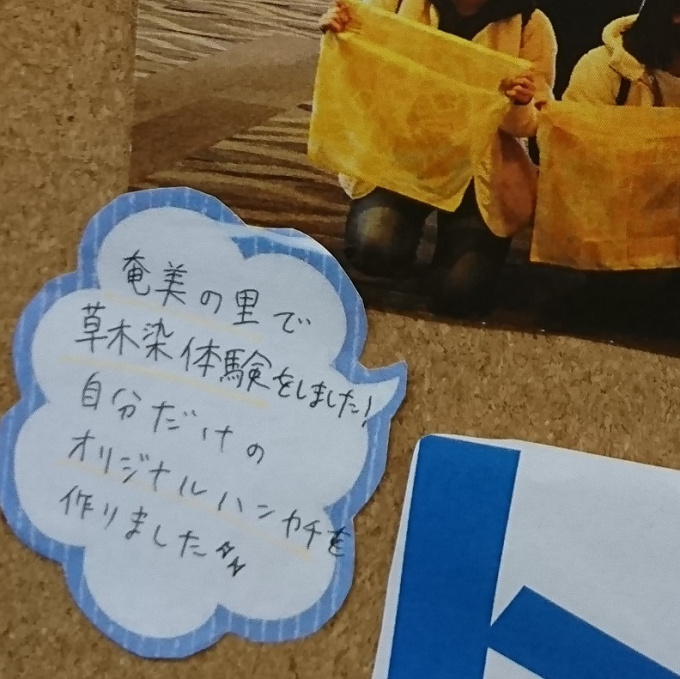 奄美の里で
草木染体験をしました!
自分だけの
オリジナルハンカチを
作りました
ト